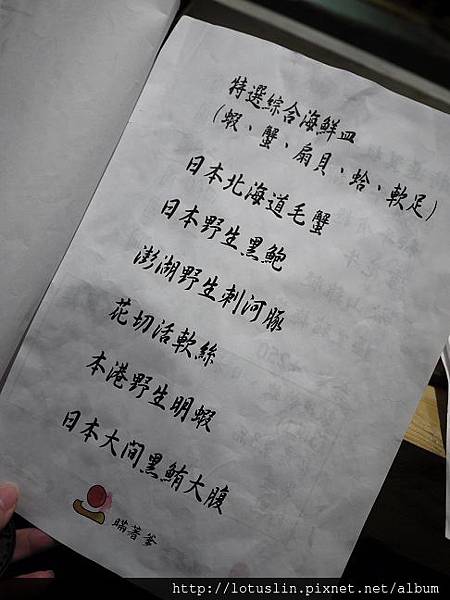 特選綜合海鮮皿
(蝦、蟹、扇貝、蛤、軟足)
日本北海道毛蟹
日本野生黑鮑
澎湖野生刺河豚
花切活軟絲
本港野生明蝦
日本大間黑鮪大腹
瞞著爹
http://lotuslin.pixnet.net/album